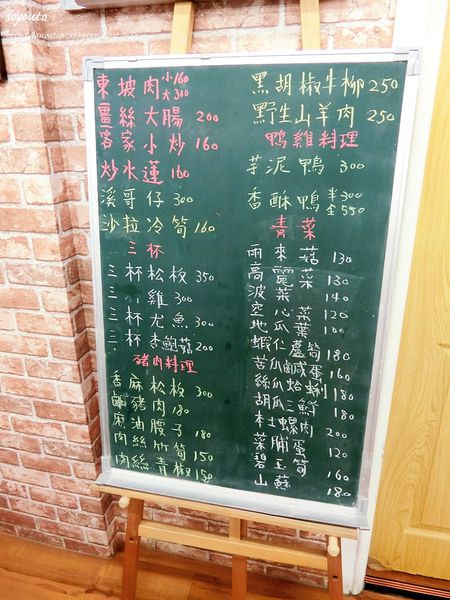 soyouto
東坡肉 小160 大300
薑絲大腸 200
客家小炒 160
炒水蓮 160
溪哥仔 300
沙拉冷筍 160
三杯
三杯松板 350
三杯雞 300
三杯尤魚 300
三杯杏鮑菇 200
豬肉料理
香麻松板 300
鹹豬肉 180
麻油腰子 180
肉絲竹筍 150
肉絲青椒 150
黑胡椒牛柳 250
野生山羊肉 250
鴨雞料理
芋泥鴨 300
香酥鴨 半300 全550
青菜
雨來菇 130
高麗菜 130
波菜 140
空心菜 120
地瓜葉 100
蝦仁蘆筍 180
苦瓜鹹蛋 160
絲瓜蛤蜊 180
胡瓜三鮮 180
本土螺肉 200
菜脯蛋 120
碧玉筍 160
山蘇 180